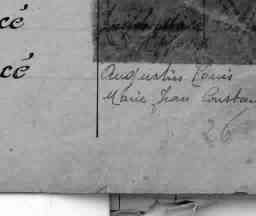 cé
cé
Augustin Louis
Marie Jean Constan
26